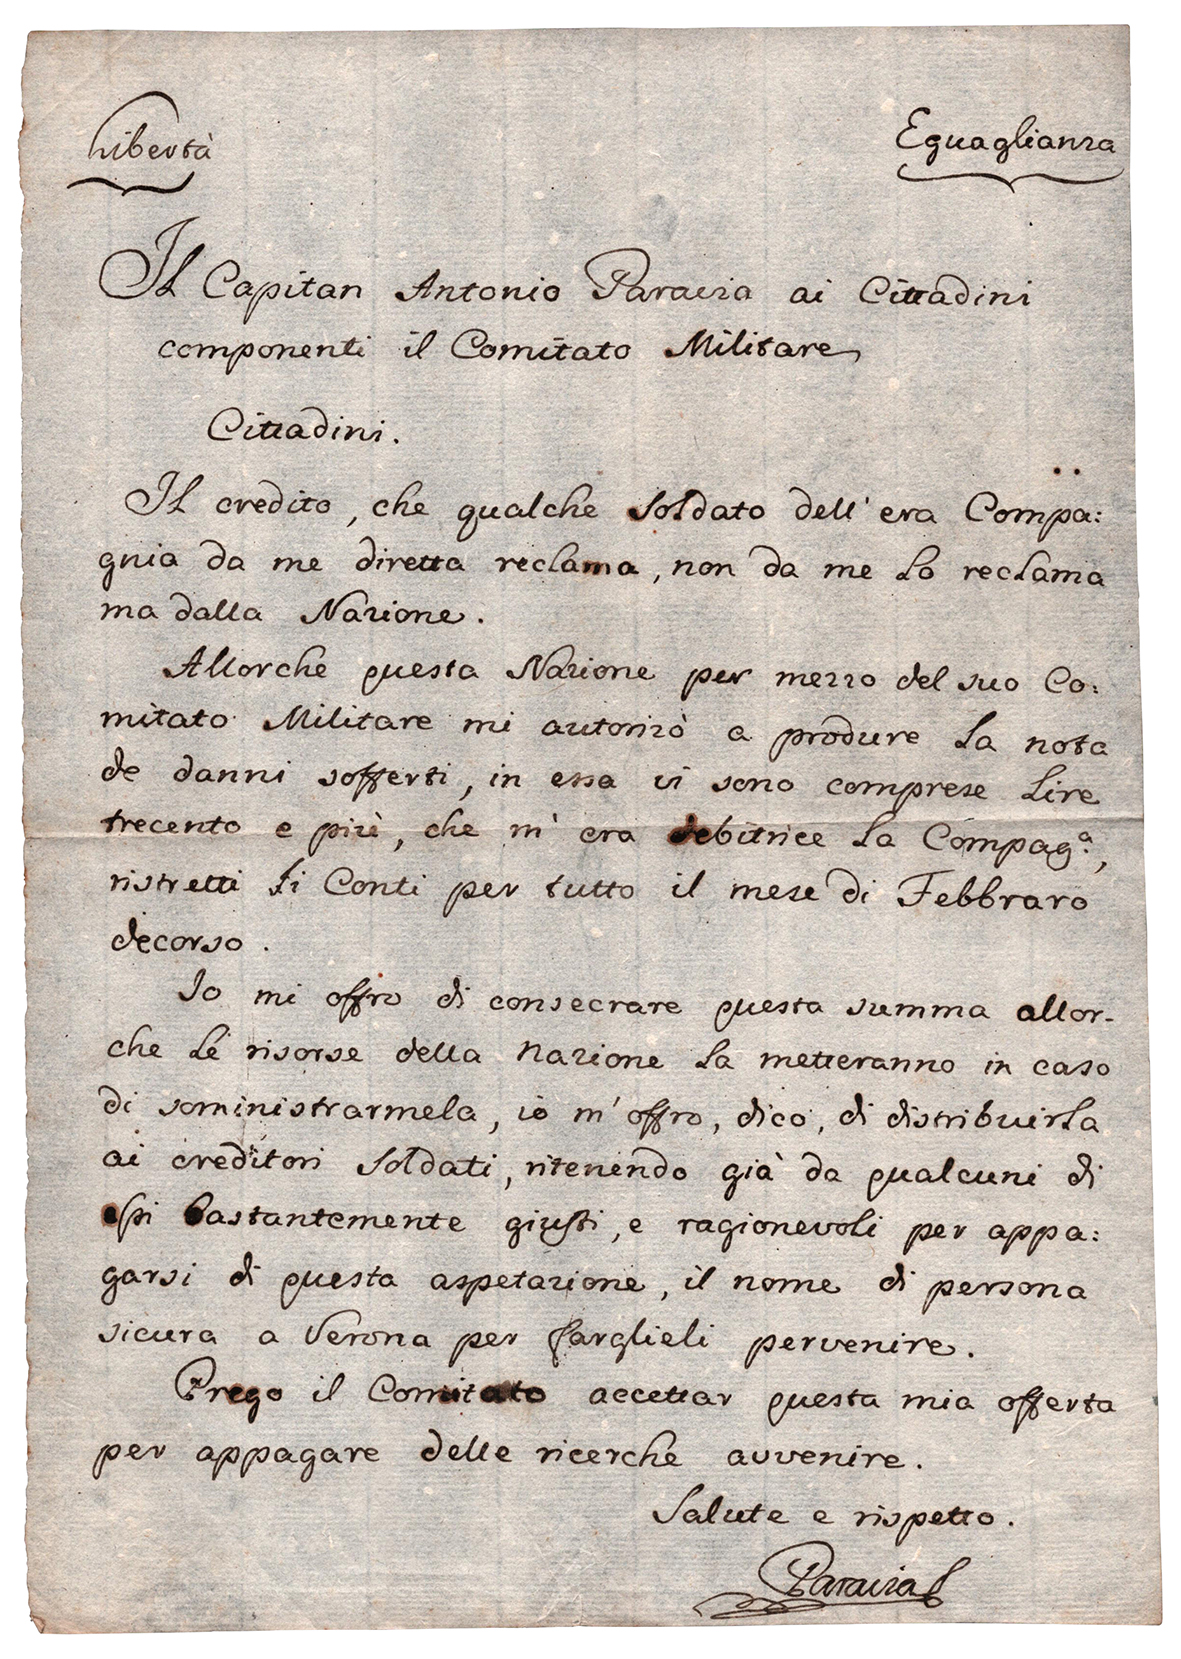 Libertà
Eguaglianza
Il Capitan Antonio Paravia ai Cittadini
componenti il Comitato Militare
Cittadini.
Il credito, che qualche soldato dell' era Compa:
gnia da me diretta reclama, non da me lo reclama
ma dalla Nazione.
Allorche questa Nazione per mezzo del suo Co:
mitato Militare mi autorizò a produre la nota
de danni sofferti, in essa vi sono comprese Lire
trecento e più, che m' era debitrice la Compag.ª,
ristretti li Conti per tutto il mese di Febbraro
decorso.
Io mi offro di consecrare questa summa allor-
che le risorse della Nazione la metteranno in caso
di soministrarmela, io m' offro, dico, di distribuirla
ai creditori soldati, ritenendo già da qualcuni di
essi bastantemente giusti, e ragionevoli per appa:
garsi di questa aspetazione, il nome di persona
sicura a Verona per farglieli pervenire.
Prego il Comitato accettar questa mia offerta
per appagare delle ricerche avvenire.
Salute e rispetto.
Paravia